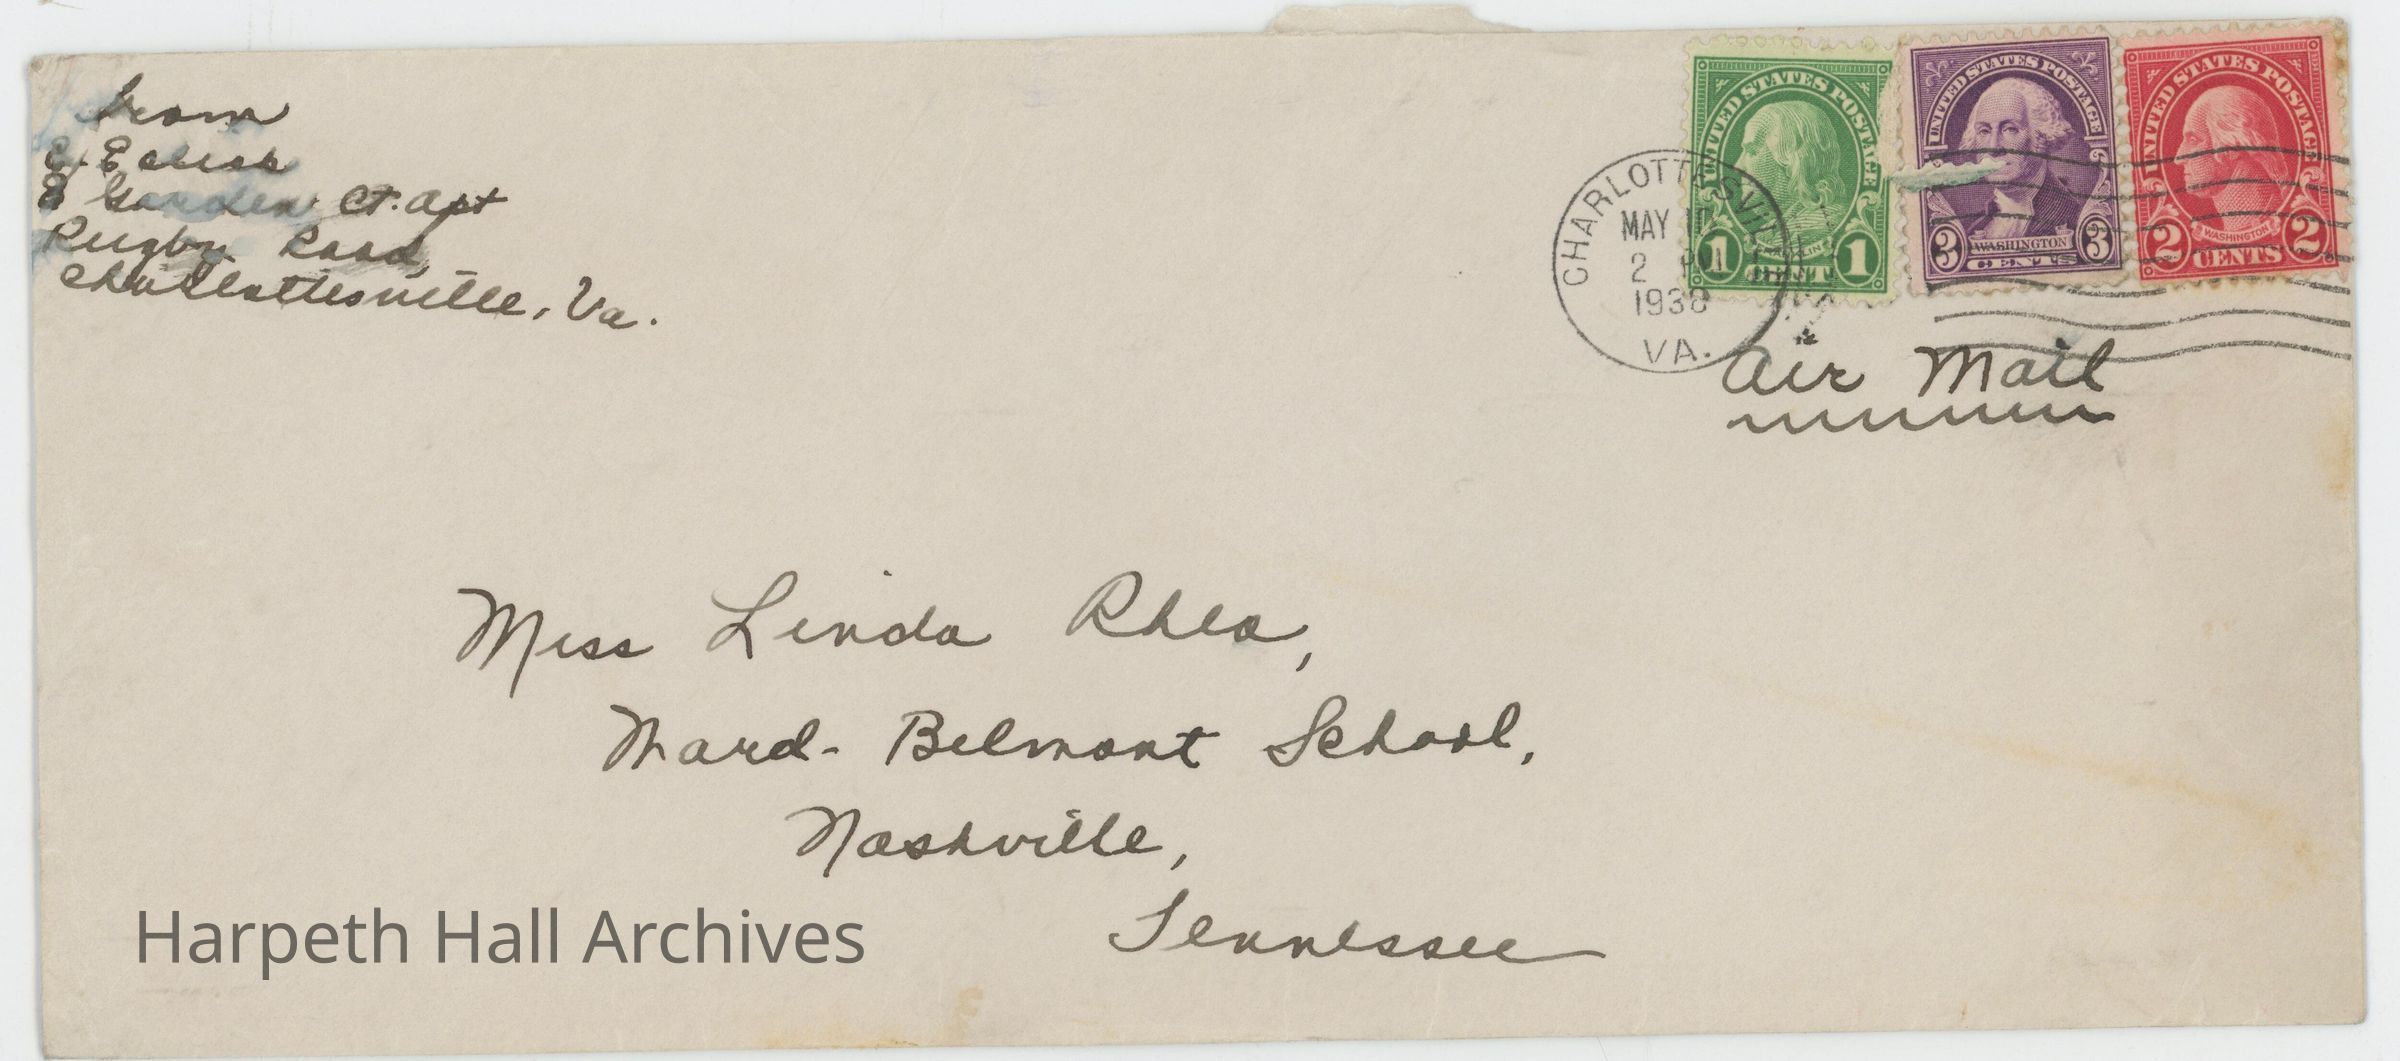 from
E.
8 Garden Ct. Apt
Rugby Road,
Charlottesville, Va.
UNITED STATES POSTAGE
1 FRANKLIN 1
CENT
UNITED STATES POSTAGE
3 WASHINGTON 3
CENTS
UNITED STATES POSTAGE
2 WASHINGTON 2
CENTS
CHARLOTTESVILLE
MAY
2 PM
1938
VA.
Air Mail
Miss Linda Rhea,
Ward-Belmont School,
Nashville,
Tennessee
Harpeth Hall Archives